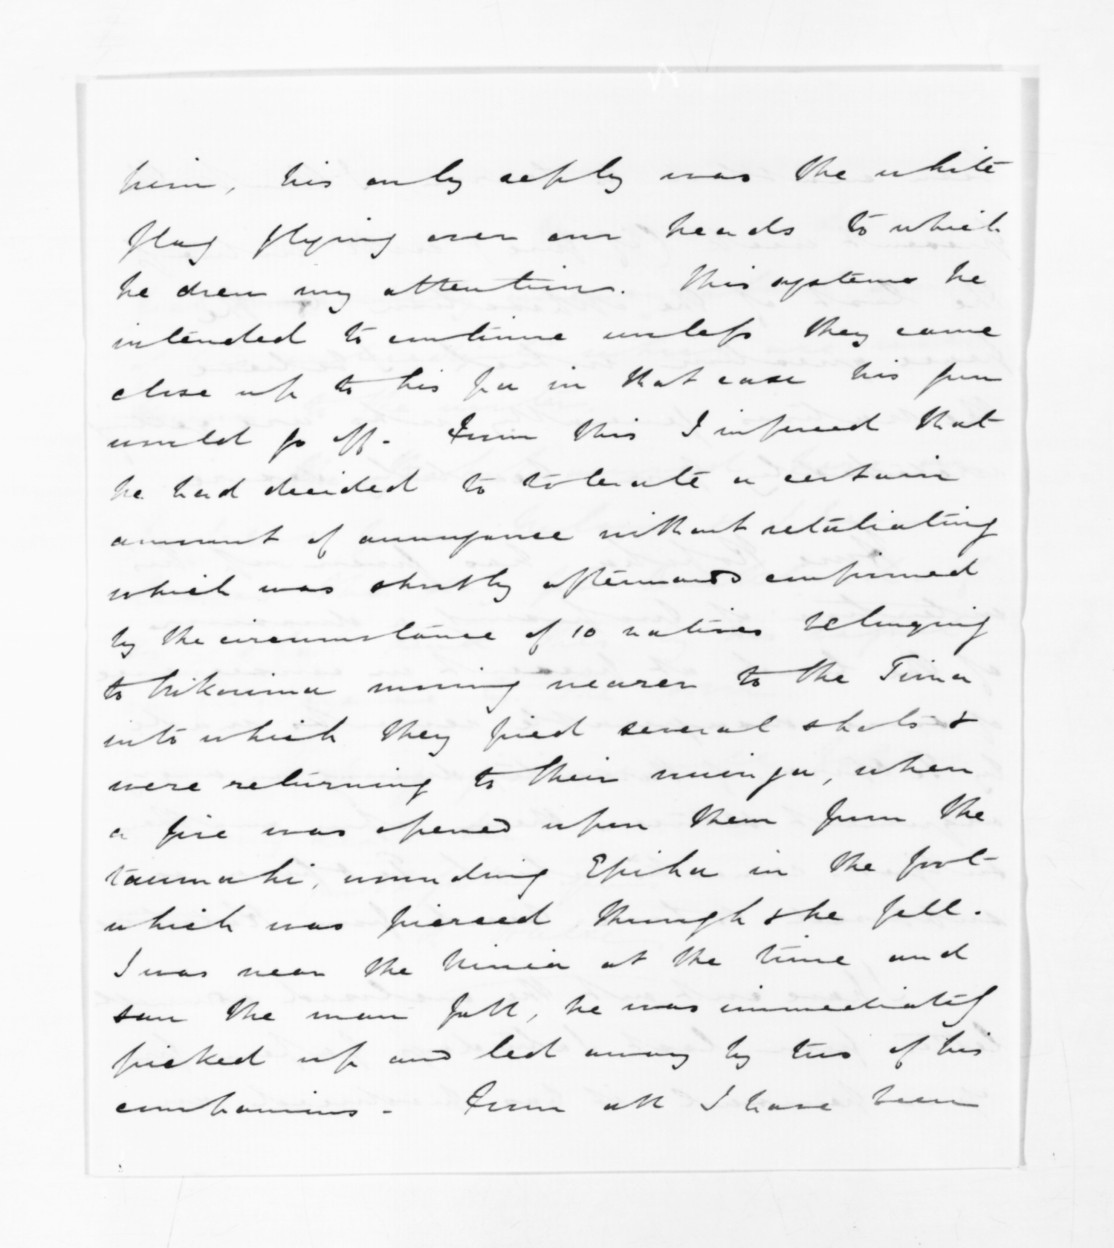 him, his only reply was the white
flag flying over our heads to which
he drew my attention. This system he
intended to continue unless they came
close up to his pa in that case his gun
would go off. From this I inferred that
he had decided to tolerate a certain
amount of annoyance without retaliating
which was shortly afterwards confirmed
by the circumstance of 10 natives belonging
to moving nearer to the
into which they fired several shots &
were returning to their pa, when
a fire was opened upon them from the
taumaki, wounding Epiha in the foot
which was pierced through & he fell.
I was near the at the time and
saw the man fall, he was immediately
picked up and led away by two of his
companions. From all I have been